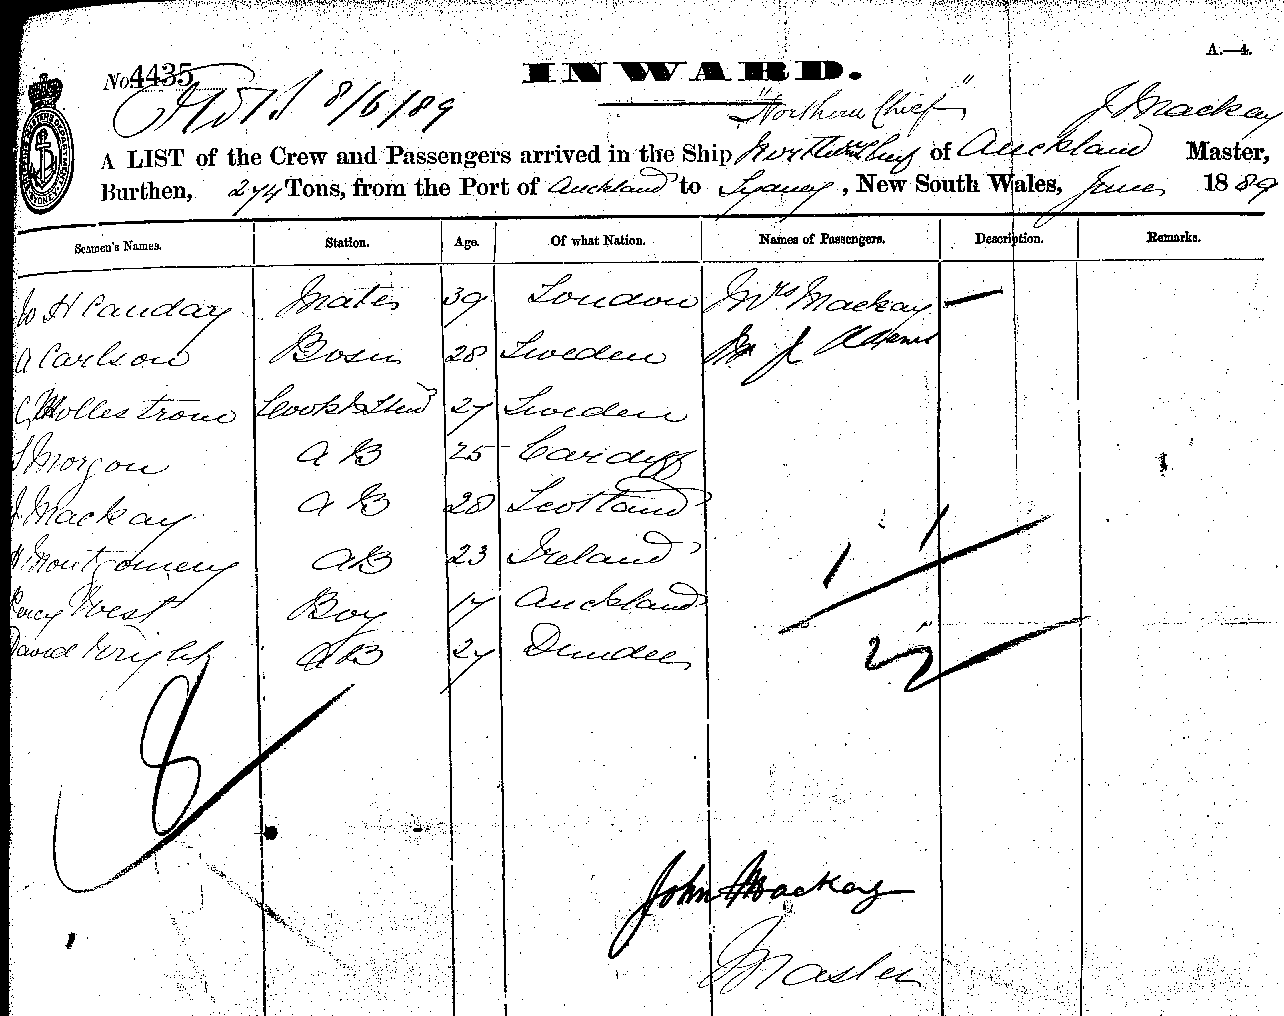 A.—4.
No. 4435
INWARD.
8/6/89
"Northern Chief"
J Mackay
A LIST of the Crew and Passengers arrived in the Ship of Auckland Master,
Burthen, 274 Tons, from the Port of Auckland to Sydney, New South Wales, June 1889
Seamen's Names. Station. Age. Of what Nation. Names of Passengers. Description. Remarks.
W H Canday Mate 39 London Mrs Mackay —
A Carlson Bosn 28 Sweden Mr J Adams
Cook & Stewd 27 Sweden
S Morgon A B 25 Cardiff
J Mackay A B 28 Scotland
Montgomery AB 23 Ireland
Percy West Boy 17 Auckland
David Wright AB 27 Dundee
1 1
2
8
John Mackay
Master